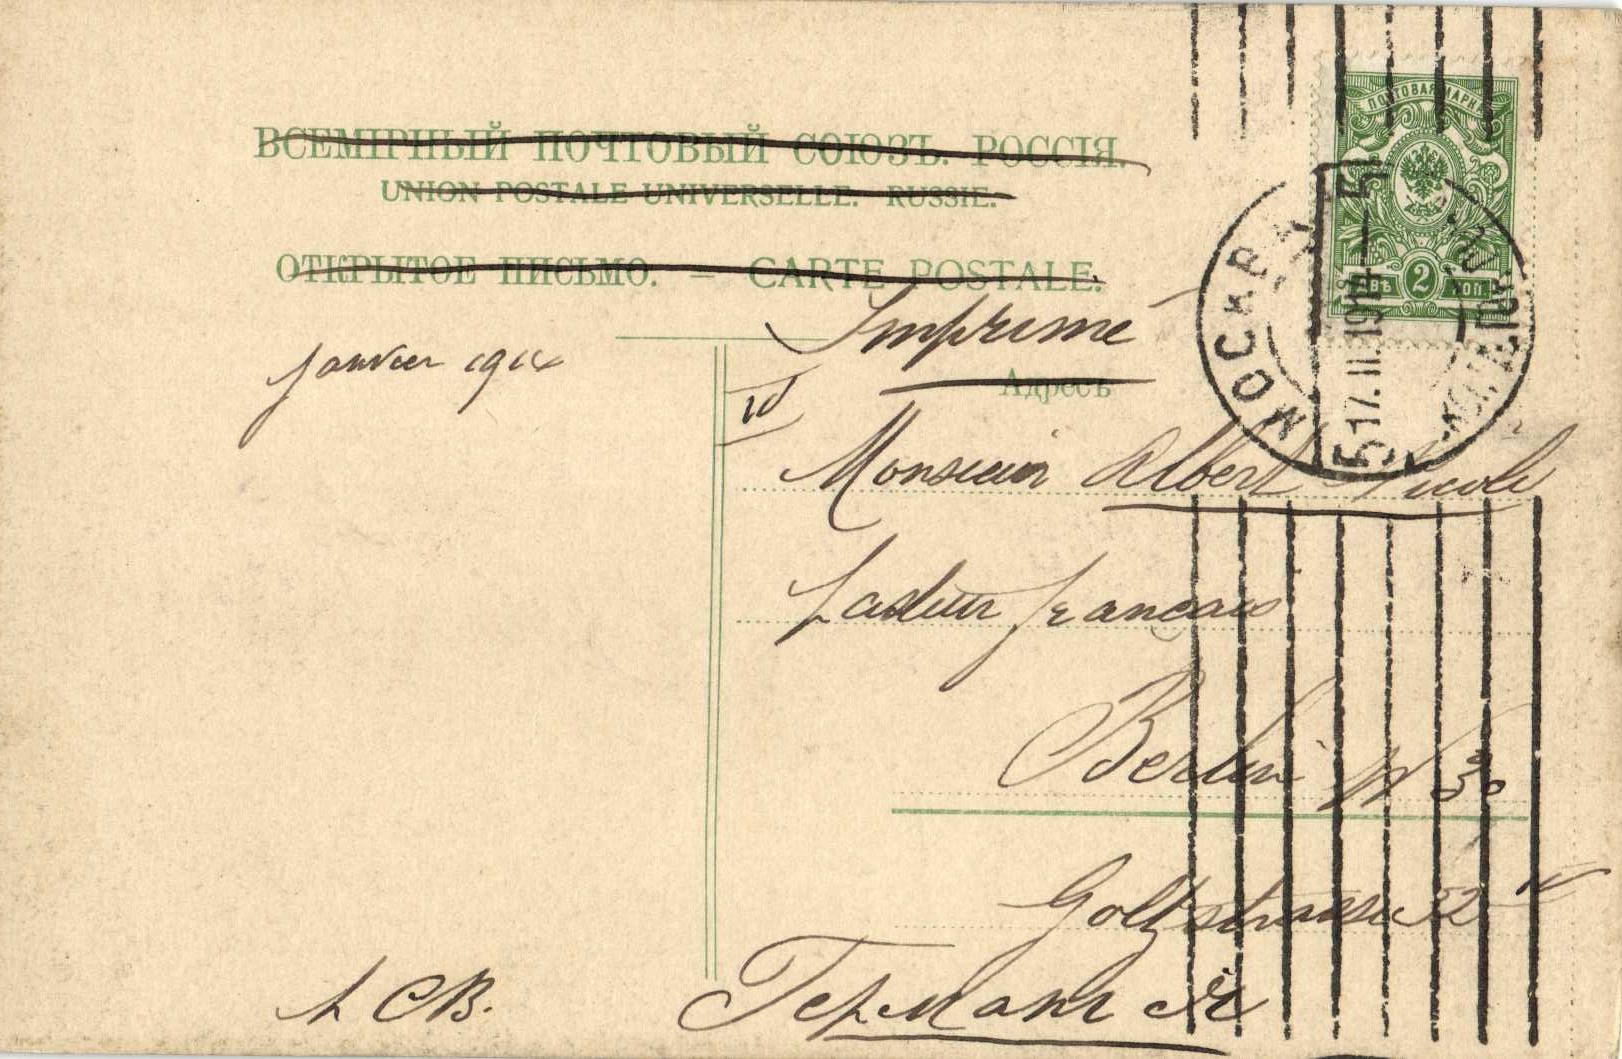 ВСЕМІРНЫЙ ПОЧТОВЫЙ СОЮЗЪ. РОССІЯ.
UNION POSTALE UNIVERSELLE. RUSSIE.
ОТКРЫТОЕ ПИСЬМО. — CARTE POSTALE.
ПОЧТОВАЯ МАРКА
2
КОП
МОСКВА
5 17.II.1914
Imprimé
Janvier 1914
Адресъ
Monsieur Albert Nicole
Pasteur français
Berlin W 30
Goltzstrasse 32
Германія